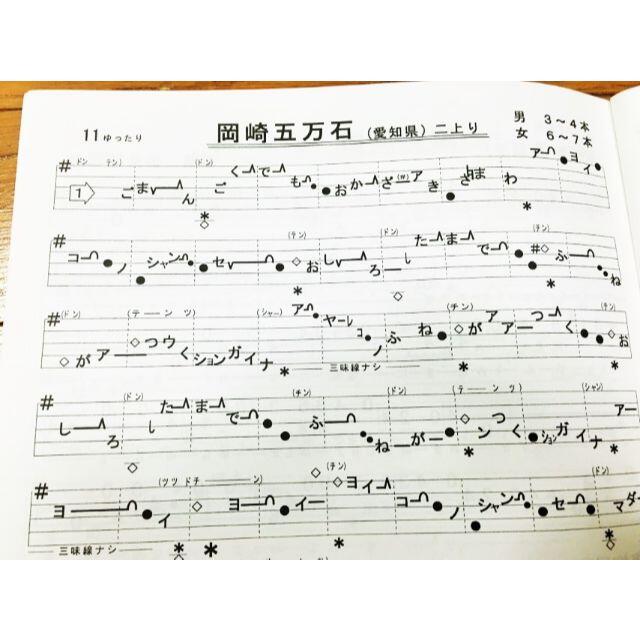 11 ゆったり 岡崎五万石 (愛知県) 二上り 男 3～4本
女 6～7本
ドン テン) (ドン)
1 ごまーん ごくーでも おかーざ ア き ざま わ アー ヨイ
(テン) (チン)
コー ノ シャン セー お しーろーし たーまーで ふーね
(ドン) (テーンツ) (シャー) (チン) (チン)
が アーつウく ションガイナ アー ヤーレ コノ ふね が アアーつーく お
三味線ナシ
(ドン) (チン) (ドン) (テーンツ) (シャン)
しーろ したーまーで ふーねーがーンつく ションガイナ アー
(ツツ ドチーーン) (チン) (ドン)
ヨーイ ヨーイー ヨイー コー ノ シャン セー マダー
三味線ナシ 三味線ナシ